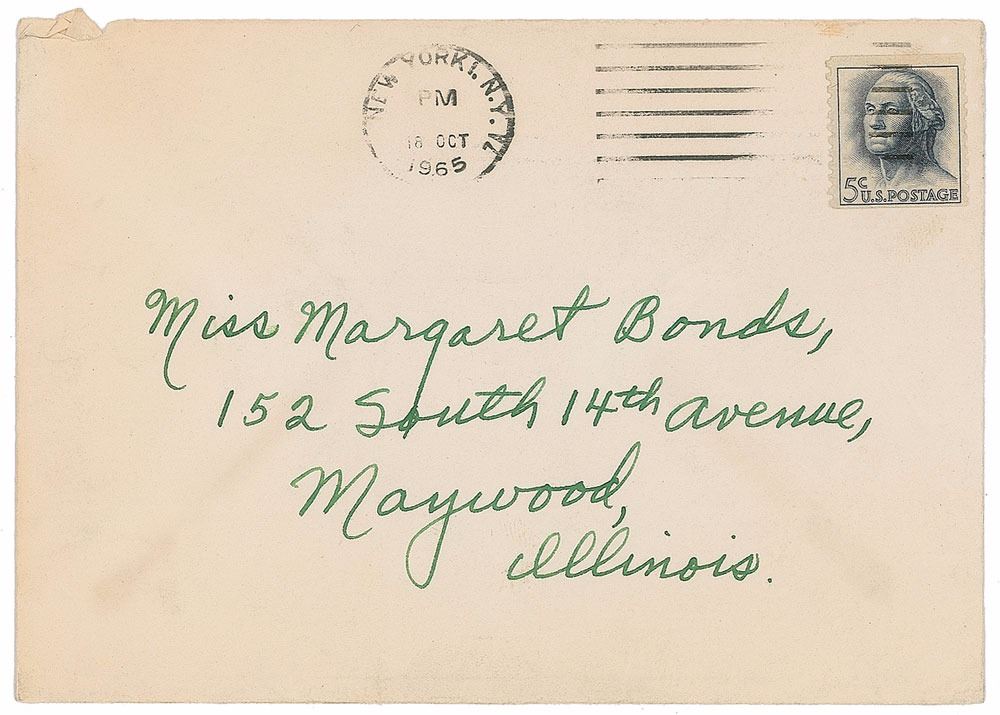 NEW YORK 1, N.Y.
PM
18 OCT
1965
5c
U.S. POSTAGE
Miss Margaret Bonds,
152 South 14th Avenue,
Maywood,
Illinois.